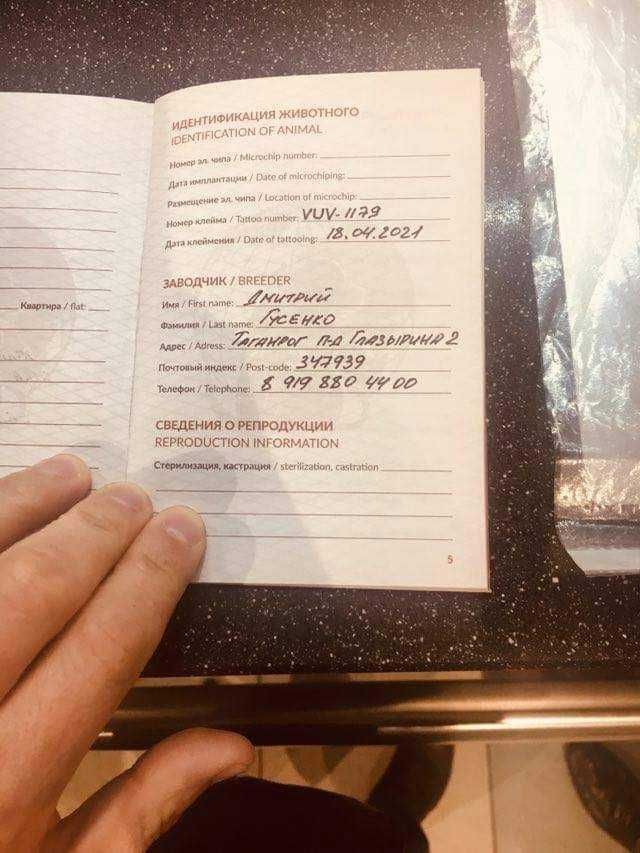 ИДЕНТИФИКАЦИЯ ЖИВОТНОГО
IDENTIFICATION OF ANIMAL
Номер эл. чипа / Microchip number:
Дата имплантации / Date of microchiping:
Размещение эл. чипа / Location of microchip:
Номер клейма / Tattoo number: VUV-1179
Дата клеймения / Date of tattooing: 18.04.2021
ЗАВОДЧИК / BREEDER
Имя / First name: Дмитрий
Квартира / flat:
Фамилия / Last name: Гусенко
Адрес / Adress: Таганрог п-д Глазырина 2
Почтовый индекс / Post-code: 347939
Телефон / Telephone: 8 919 880 44 00
СВЕДЕНИЯ О РЕПРОДУКЦИИ
REPRODUCTION INFORMATION
Стерилизация, кастрация / sterilization, castration
5